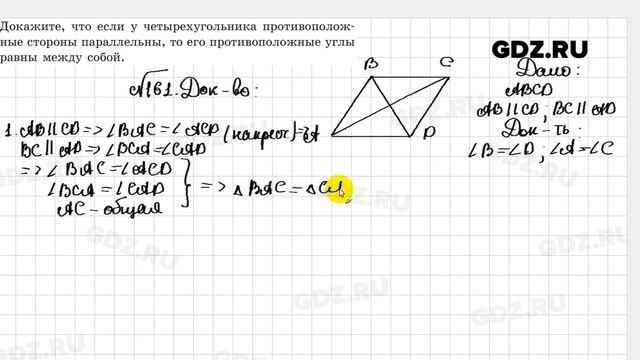 Докажите, что если у четырехугольника противополож-
ные стороны параллельны, то его противоположные углы
равны между собой.
GDZ.RU
№161. Док-во:
Дано:
ABCD
AB || CD ; BC || AD
Док-ть:
∠B = ∠D ; ∠A = ∠C
B C
A D
1. AB || CD => ∠BAC = ∠ACD (накрест)=>
BC || AD => ∠BCA = ∠CAD
=> ∠BAC = ∠ACD
∠BCA = ∠CAD
AC - общая
=> △BAC = △CA
GDZ.RU
GDZ.RU
GDZ.RU
GDZ.RU
GDZ.RU